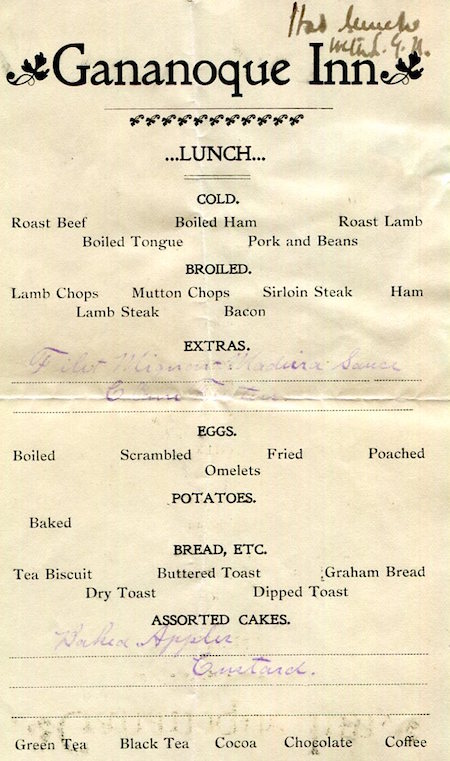 Had
Gananoque Inn
...LUNCH...
COLD.
Roast Beef Boiled Ham Roast Lamb
Boiled Tongue Pork and Beans
BROILED.
Lamb Chops Mutton Chops Sirloin Steak Ham
Lamb Steak Bacon
EXTRAS.
Filet Mignon Madeira Sauce
EGGS.
Boiled Scrambled Fried Poached
Omelets
POTATOES.
Baked
BREAD, ETC.
Tea Biscuit Buttered Toast Graham Bread
Dry Toast Dipped Toast
ASSORTED CAKES.
Baked Apples
Custard.
Green Tea Black Tea Cocoa Chocolate Coffee